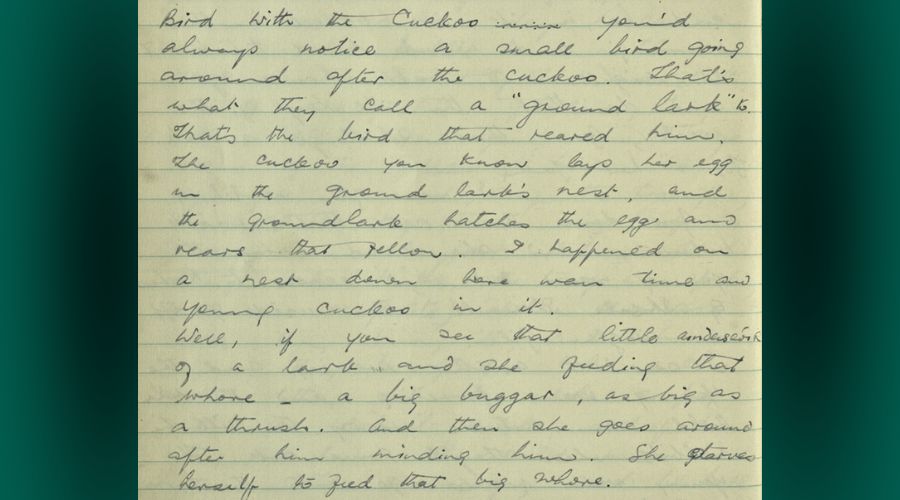 Bird with the Cuckoo ......... you'd
always notice a small bird going
around after the cuckoo. That's
what they call a "ground lark" to.
That's the bird that reared him.
The cuckoo you know lays her egg
in the ground lark's nest, and
the groundlark hatches the egg and
rears that fellow. I happened on
a nest down here wan time and
young cuckoo in it.
Well, if you see that little
of a lark .. and she feeding that
whore - a big buggar, as big as
a thrush. And then she goes around
after him minding him. She starves
herself to feed that big whore.